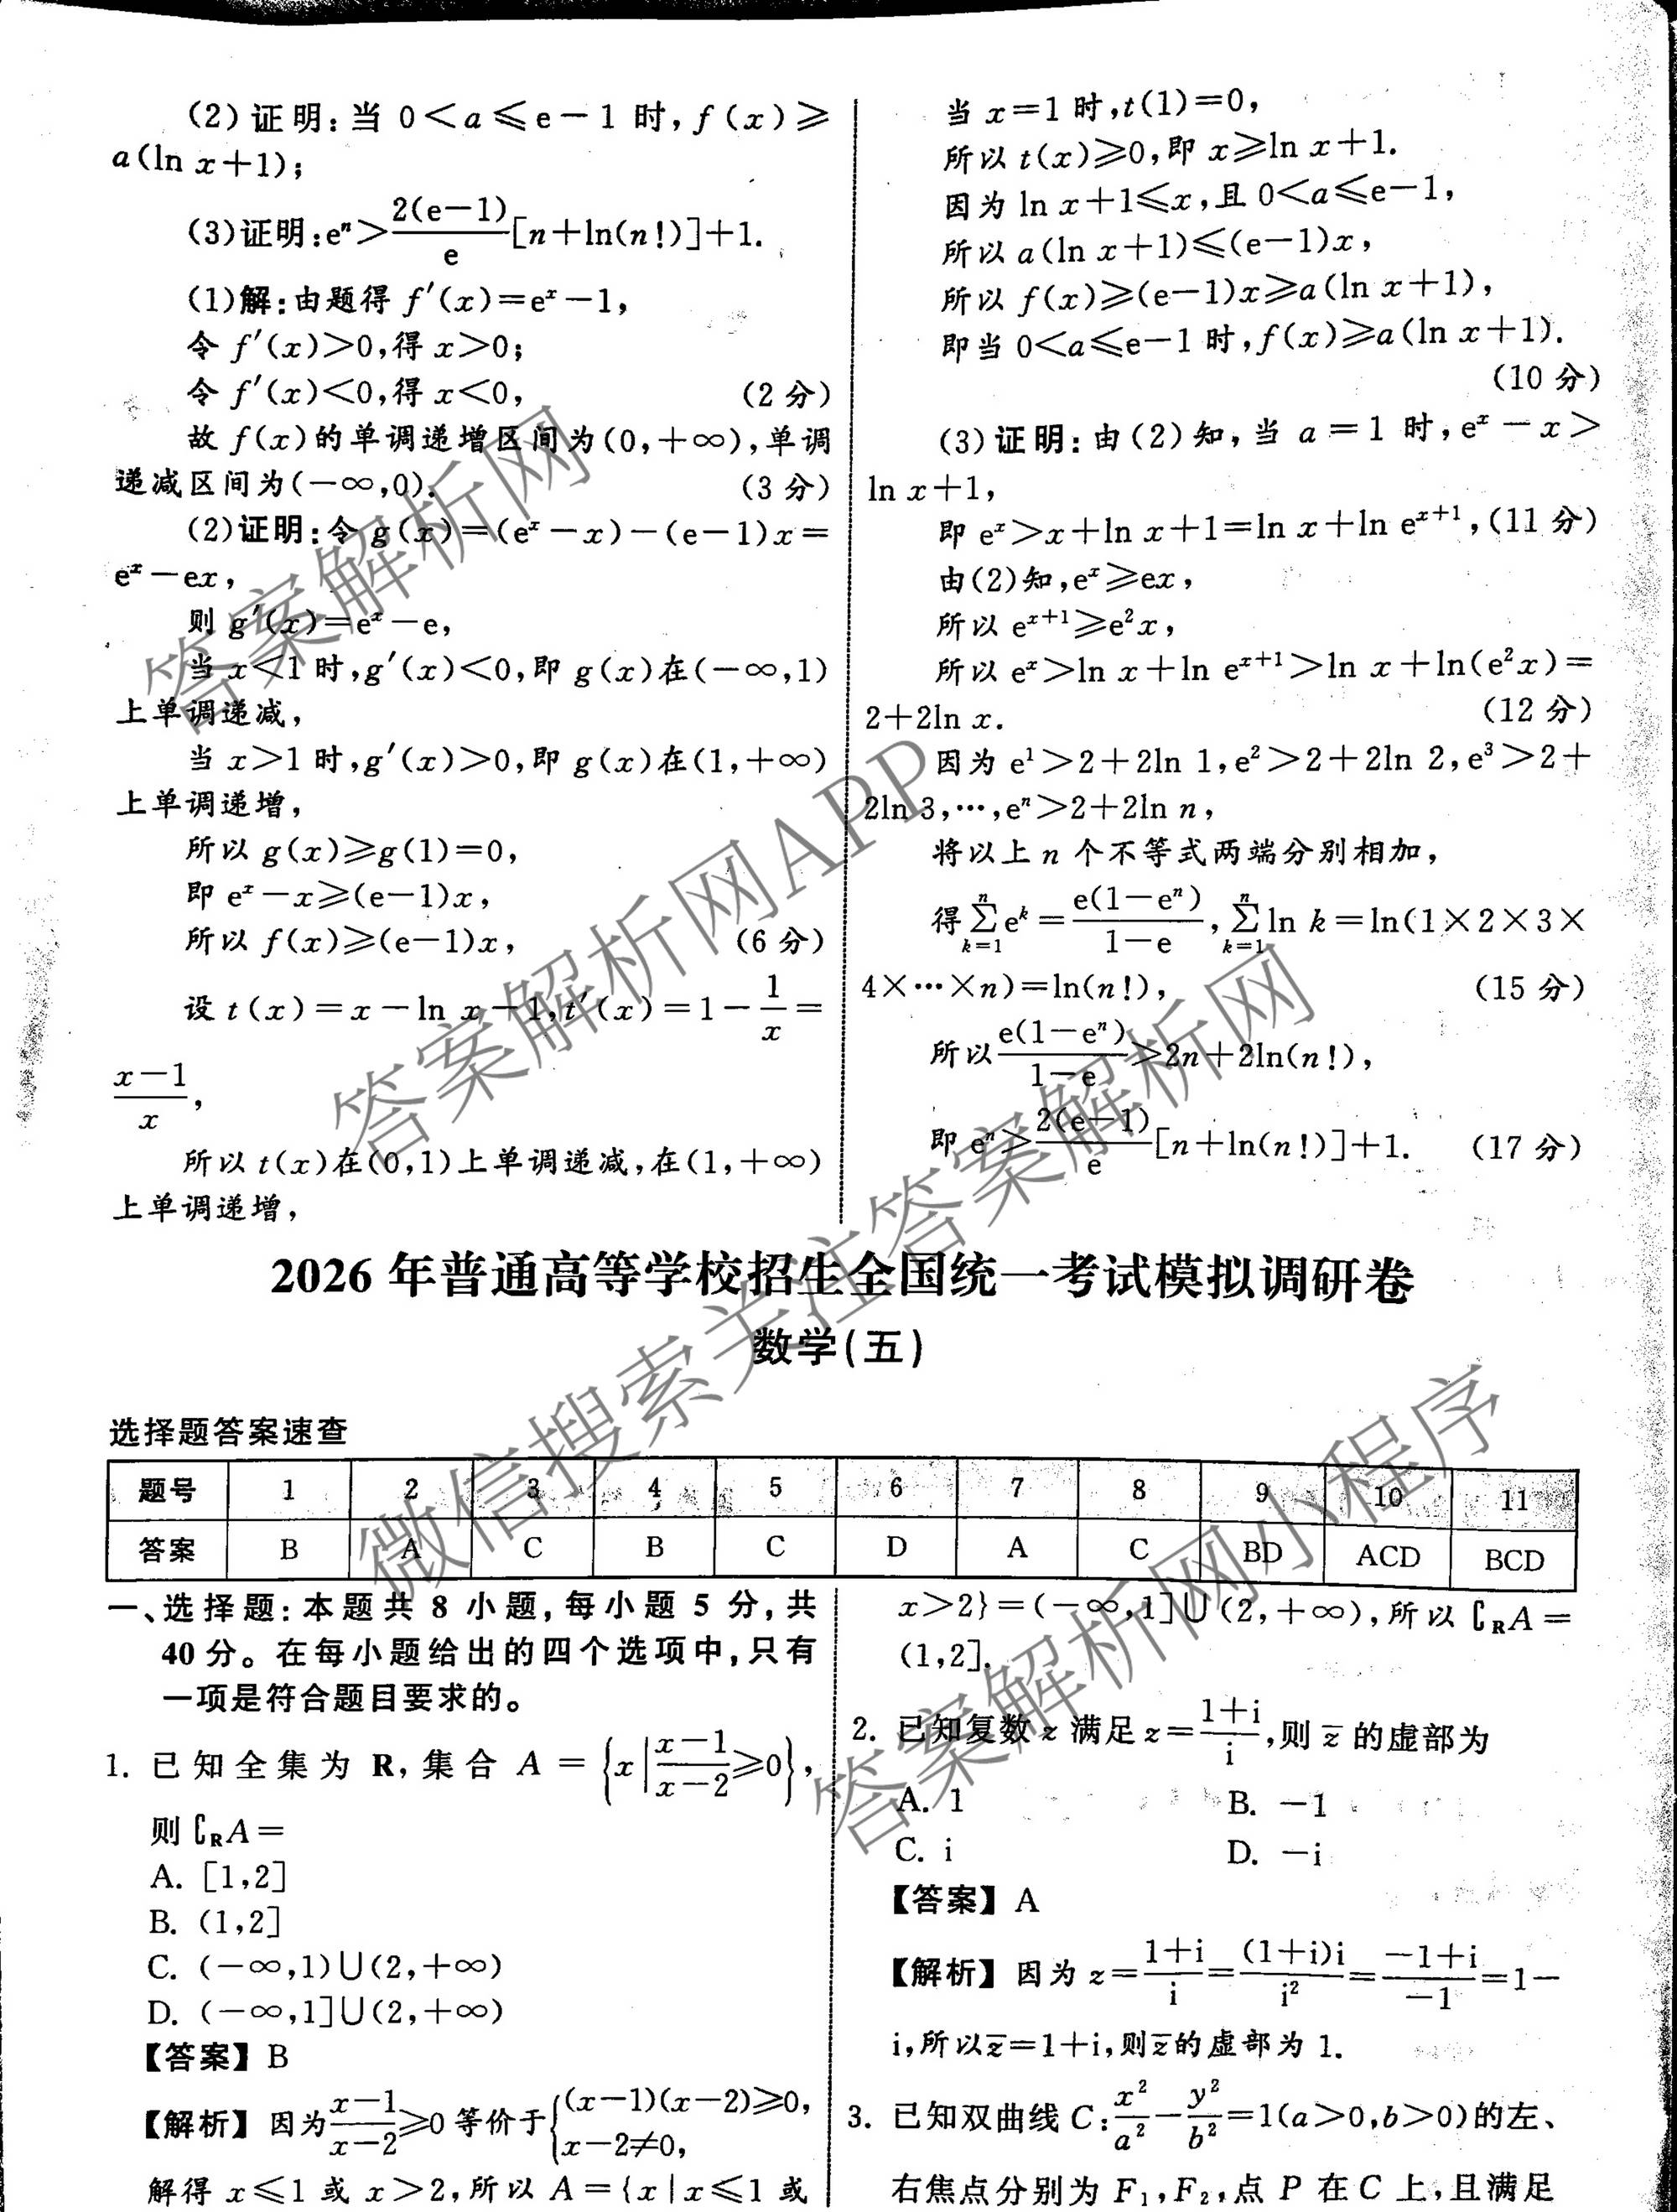 (2)证明:当 0<a⩽e−1 时,f(x)⩾
a(ln x+1);
(3)证明:eⁿ>2(e−1)/e[n+ln(n!)]+1.
(1)解:由题得 f′(x)=eˣ−1,
令 f′(x)>0,得 x>0;
令 f′(x)<0,得 x<0, (2 分)
故 f(x)的单调递增区间为(0,+∞),单调
递减区间为(−∞,0). (3 分)
(2)证明:令 g(x)=(eˣ−x)−(e−1)x=
eˣ−ex,
则 g′(x)=eˣ−e,
当 x<1 时,g′(x)<0,即 g(x)在(−∞,1)
上单调递减,
当 x>1 时,g′(x)>0,即 g(x)在(1,+∞)
上单调递增,
所以 g(x)⩾g(1)=0,
即 eˣ−x⩾(e−1)x,
所以 f(x)⩾(e−1)x, (6 分)
设 t(x)=x−ln x−1,t′(x)=1−1/x=
(x−1)/x,
所以 t(x)在(0,1)上单调递减,在(1,+∞)
上单调递增,
当 x=1 时,t(1)=0,
所以 t(x)⩾0,即 x⩾ln x+1.
因为 ln x+1⩽x,且 0<a⩽e−1,
所以 a(ln x+1)⩽(e−1)x,
所以 f(x)⩾(e−1)x⩾a(ln x+1),
即当 0<a⩽e−1 时,f(x)⩾a(ln x+1).
(10 分)
(3)证明:由(2)知,当 a=1 时,eˣ−x>
ln x+1,
即 eˣ>x+ln x+1=ln x+ln eˣ⁺¹,(11 分)
由(2)知,eˣ⩾ex,
所以 eˣ⁺¹⩾e²x,
所以 eˣ>ln x+ln eˣ⁺¹>ln x+ln(e²x)=
2+2ln x. (12 分)
因为 e¹>2+2ln 1,e²>2+2ln 2,e³>2+
2ln 3,…,eⁿ>2+2ln n,
将以上 n 个不等式两端分别相加,
得 ∑ₖ₌₁ⁿ eᵏ=e(1−eⁿ)/(1−e), ∑ₖ₌₁ⁿ ln k=ln(1×2×3×
4×…×n)=ln(n!), (15 分)
所以 e(1−eⁿ)/(1−e)>2n+2ln(n!),
即 eⁿ>2(e−1)/e[n+ln(n!)]+1. (17 分)
2026 年普通高等学校招生全国统一考试模拟调研卷
数学(五)
选择题答案速查
题号 1 2 3 4 5 6 7 8 9 10 11
答案 B A C B C D A C BD ACD BCD
一、选择题:本题共 8 小题,每小题 5 分,共
40 分。在每小题给出的四个选项中,只有
一项是符合题目要求的。
1. 已知全集为 R,集合 A={x|(x−1)/(x−2)⩾0},
则 ∁RA=
A. [1,2]
B. (1,2]
C. (−∞,1)∪(2,+∞)
D. (−∞,1]∪(2,+∞)
【答案】B
【解析】因为(x−1)/(x−2)⩾0 等价于{(x−1)(x−2)⩾0, x−2≠0,
解得 x⩽1 或 x>2,所以 A={x|x⩽1 或
x>2}=(−∞,1]∪(2,+∞),所以 ∁RA=
(1,2].
2. 已知复数 z 满足 z=(1+i)/i,则 z̄ 的虚部为
A. 1 B. −1
C. i D. −i
【答案】A
【解析】因为 z=(1+i)/i=(1+i)i/i²=(−1+i)/−1=1−
i,所以 z̄=1+i,则 z̄ 的虚部为 1.
3. 已知双曲线 C:x²/a²−y²/b²=1(a>0,b>0)的左、
右焦点分别为 F₁,F₂,点 P 在 C 上,且满足
答案解析网
答案解析网APP
微信搜索关注答案解析网
答案解析网小程序